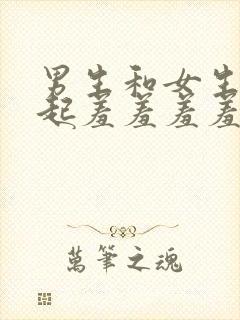 男生和女生
起羞羞羞羞
萬筆之魂